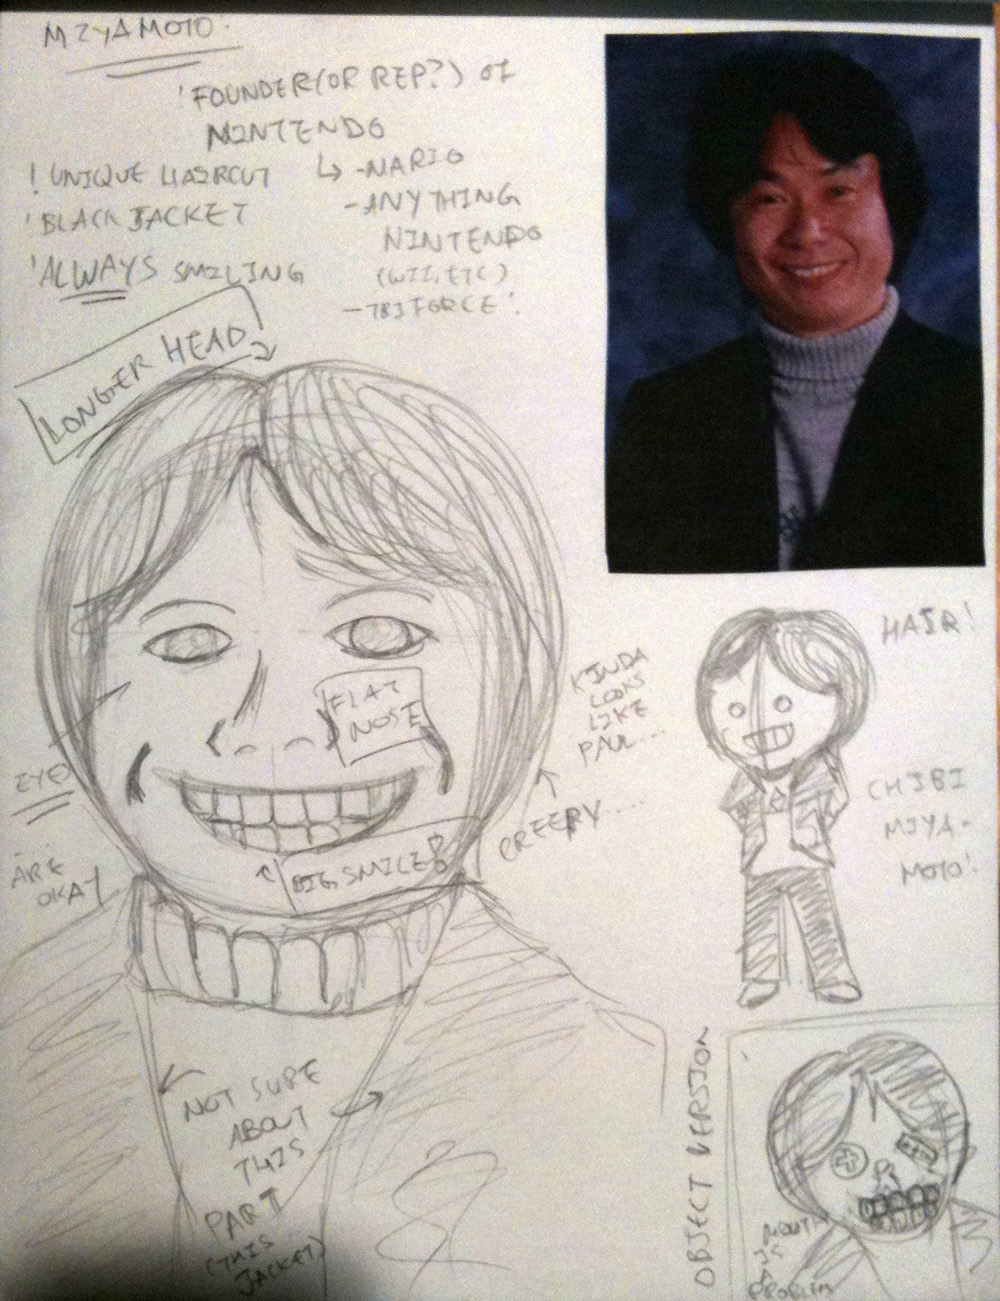 MIYAMOTO.
'FOUNDER(OR REP?) OF
NINTENDO
! UNIQUE HAIRCUT
'BLACK JACKET
'ALWAYS SMILING
↳ -MARIO
-ANYTHING
NINTENDO
(WII, ETC)
-TRIFORCE!
LONGER HEAD
FLAT
NOSE
KINDA
LOOKS
LIKE
PAUL...
CREEPY....
EYES
ARE
OKAY
BIG SMILE!
HAIR!
CHIBI
MIYA-
MOTO!
NOT SURE
ABOUT
THIS
PART
(THIS
JACKET)
OBJECT VERSION
MOUTH
IS
A
PROBLEM